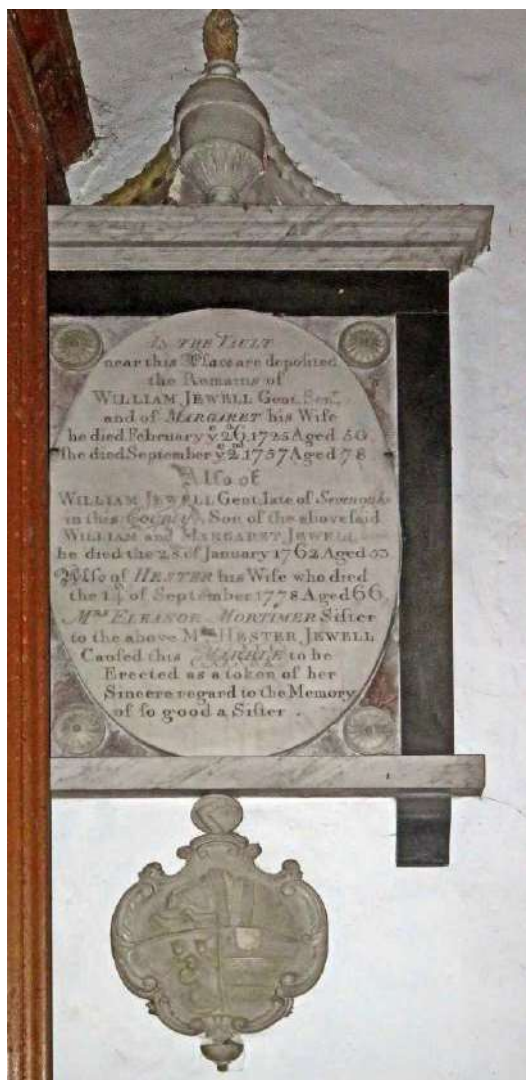 IN THE VAULT
near this Place are deposited
the Remains of
WILLIAM JEWELL Gent. Senr.
and of MARGARET his Wife
he died February ye 26, 1725 Aged 50
ſhe died September ye 2d 1757 Aged 78
Alſo of
WILLIAM JEWELL Gent. late of Sevenoaks
in this COUNTY Son of the aboveſaid
WILLIAM and MARGARET JEWELL
he died the 28 of January 1762 Aged 53
Alſo of HESTER his Wife who died
the of September 1778 Aged 66.
Mrs ELEANOR MORTIMER Siſter
to the above Mrs HESTER JEWELL
Cauſed this MARBLE to be
Erected as a token of her
Sincere regard to the Memory
of ſo good a Siſter .